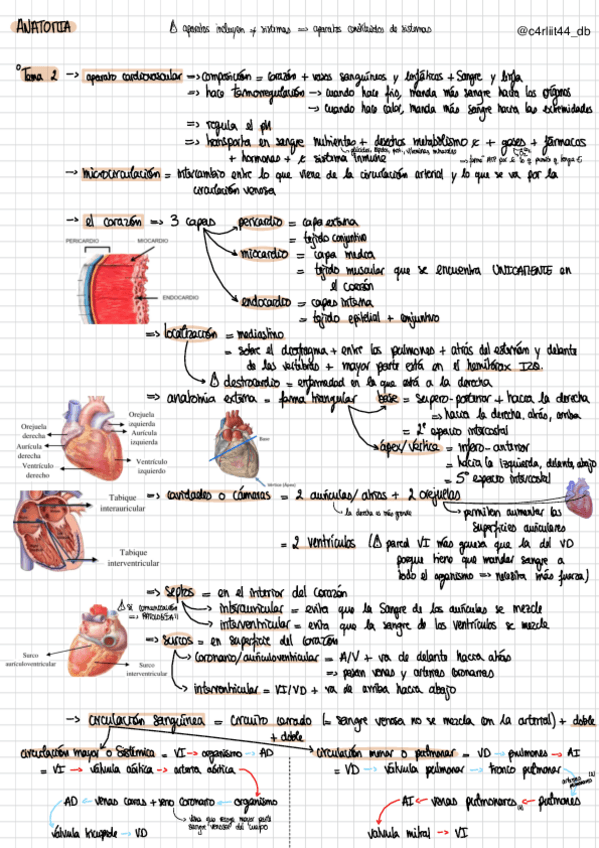 ANATOMIA
⚠ aparatos incluyen ≠ sistemas => aparatos constituidos de sistemas
@c4rliit44_db
Tema 2 -> aparato cardiovascular => composición = corazón + vasos sanguíneos y linfáticos + sangre y linfa
=> hace termorregulación -> cuando hace frío, manda más sangre hacia los órganos
-> cuando hace calor, manda más sangre hacia las extremidades
=> regula el pH
=> transporta en sangre nutrientes + desechos metabolismo + gases + fármacos
+ hormonas + sistema inmune
-> microcirculación = intercambio entre lo que viene de la circulación arterial y lo que se va por la
circulación venosa
-> el corazón => 3 capas
pericardio = capa externa
= tejido conjuntivo
miocardio = capa media
= tejido muscular que se encuentra UNICAMENTE en
el corazón
endocardio = capa interna
= tejido epitelial + conjuntivo
PERICARDIO
MIOCARDIO
ENDOCARDIO
=> localización = mediastino
= sobre el diafragma + entre los pulmones + atrás del esternón y delante
de las vértebras + mayor parte está en el hemitórax IZQ.
⚠ dextrocardio = enfermedad en la que está a la derecha
=> anatomía externa = forma triangular
base = supero-posterior + hacia la derecha
=> hacia la derecha, atrás, arriba
= 2º espacio intercostal
ápex/vértice = infero-anterior
= hacia la izquierda, delante, abajo
= 5º espacio intercostal
Orejuela
derecha
Aurícula
derecha
Ventrículo
derecho
Orejuela
izquierda
Aurícula
izquierda
Ventrículo
izquierdo
Base
Vértice (Ápex)
=> cavidades o cámaras = 2 aurículas/atrios + 2 orejuelas
la derecha es más grande
permiten aumentar las
superficies auriculares
= 2 ventrículos (⚠ pared VI más gruesa que la del VD
porque tiene que mandar sangre a
todo el organismo => necesita más fuerza)
Tabique
interauricular
Tabique
interventricular
=> septos = en el interior del corazón
⚠ Si comunicación
=> PATOLOGÍA!!
interauricular = evita que la sangre de las aurículas se mezcle
interventricular = evita que la sangre de los ventrículos se mezcle
=> surcos = en superficie del corazón
coronario/auriculoventricular = A/V + va de delante hacia atrás
=> pasan venas y arterias coronarias
interventricular = VI/VD + va de arriba hacia abajo
Surco
auriculoventricular
Surco
interventricular
-> circulación sanguínea = circuito cerrado (= sangre venosa no se mezcla con la arterial) + doble
+ doble
circulación mayor o sistémica = VI -> organismo -> AD
= VI -> válvula aórtica -> arteria aórtica
organismo -> venas cavas + seno coronario -> AD
vena que recoge mayor parte
sangre venosa del cuerpo
válvula tricúspide -> VD
circulación menor o pulmonar = VD -> pulmones -> AI
= VD -> válvula pulmonar -> tronco pulmonar
arterias
pulmonares
pulmones -> venas pulmonares -> AI
válvula mitral -> VI